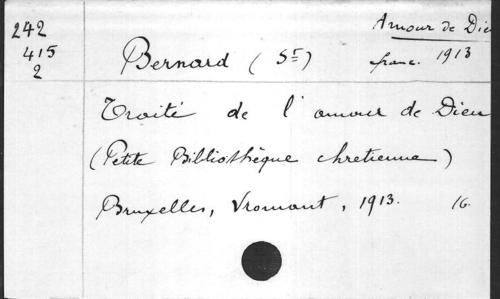 242
415
2
Amour de Dieu
franc. 1913
Bernard (St)
Traité de l'amour de Dieu
(Petite Bibliothèque chretienne)
Bruxelles, Vromant, 1913. 16.